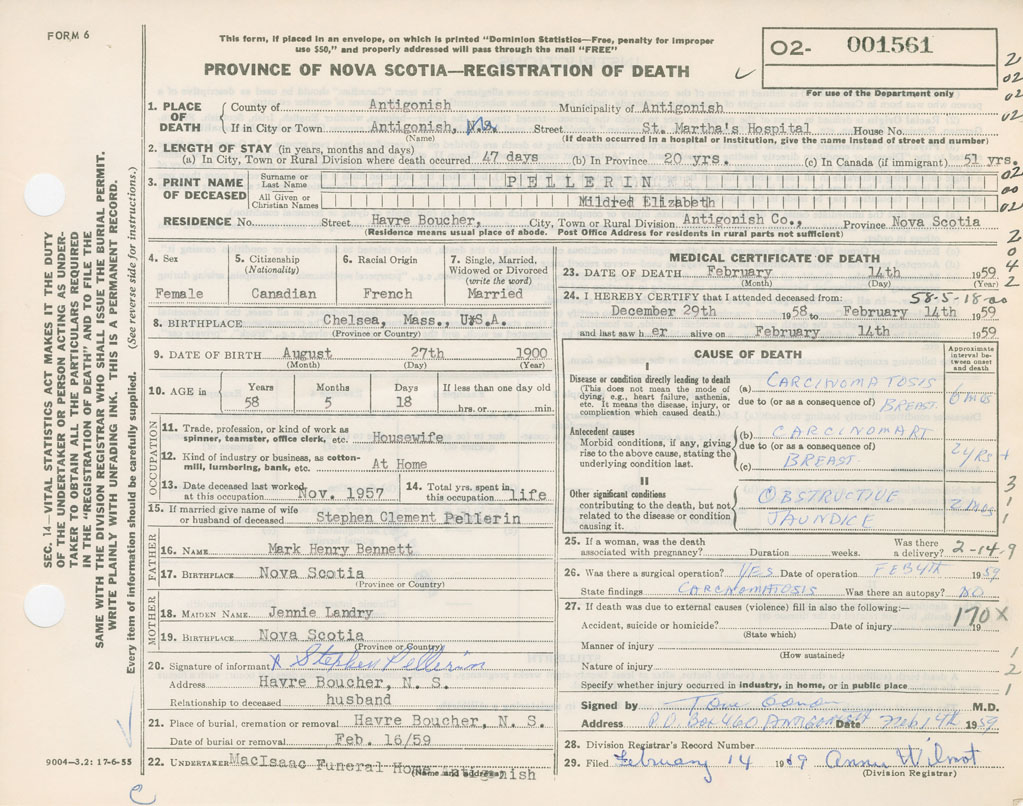 FORM 6
This form, if placed in an envelope, on which is printed "Dominion Statistics—Free, penalty for improper
use $50," and properly addressed will pass through the mail "FREE"
PROVINCE OF NOVA SCOTIA—REGISTRATION OF DEATH
O2- 001561
For use of the Department only
1. PLACE OF DEATH
County of Antigonish Municipality of Antigonish
If in City or Town Antigonish, N.S. Street St. Martha's Hospital House No.
(Name) (If death occurred in a hospital or institution, give the name instead of street and number)
2. LENGTH OF STAY (in years, months and days)
(a) In City, Town or Rural Division where death occurred 47 days (b) In Province 20 yrs. (c) In Canada (if immigrant) 51 yrs.
3. PRINT NAME OF DECEASED
Surname or Last Name PELLERIN
All Given or Christian Names Mildred Elizabeth
RESIDENCE No. Street Havre Boucher, City, Town or Rural Division Antigonish Co., Province Nova Scotia
(Residence means usual place of abode. Post Office Address for residents in rural parts not sufficient)
4. Sex
Female
5. Citizenship
(Nationality)
Canadian
6. Racial Origin
French
7. Single, Married,
Widowed or Divorced
(write the word)
Married
8. BIRTHPLACE Chelsea, Mass., U.S.A.
(Province or Country)
9. DATE OF BIRTH August 27th 1900
(Month) (Day) (Year)
10. AGE in Years Months Days If less than one day old
58 5 18 hrs. or min.
OCCUPATION
11. Trade, profession, or kind of work as
spinner, teamster, office clerk, etc. Housewife
12. Kind of industry or business, as cotton-
mill, lumbering, bank, etc. At Home
13. Date deceased last worked
at this occupation Nov. 1957
14. Total yrs. spent in
this occupation life
15. If married give name of wife
or husband of deceased Stephen Clement Pellerin
FATHER
16. NAME Mark Henry Bennett
17. BIRTHPLACE Nova Scotia
(Province or Country)
MOTHER
18. MAIDEN NAME Jennie Landry
19. BIRTHPLACE Nova Scotia
(Province or Country)
20. Signature of informant X Stephen Pellerin
Address Havre Boucher, N. S.
Relationship to deceased husband
21. Place of burial, cremation or removal Havre Boucher, N. S.
Date of burial or removal Feb. 16/59
22. UNDERTAKER MacIsaac Funeral Home, Antigonish
(Name and address)
MEDICAL CERTIFICATE OF DEATH
23. DATE OF DEATH February 14th 1959
(Month) (Day) (Year)
58-5-18-00
24. I HEREBY CERTIFY that I attended deceased from:
December 29th 1958 to February 14th 1959
and last saw h er alive on February 14th 1959
CAUSE OF DEATH
Approximate
interval be-
tween onset
and death
I
Disease or condition directly leading to death
(This does not mean the mode of
dying, e.g., heart failure, asthenia,
etc. It means the disease, injury, or
complication which caused death.)
(a) CARCINOMATOSIS
due to (or as a consequence of) BREAST.
6 mos
Antecedent causes
Morbid conditions, if any, giving
rise to the above cause, stating the
underlying condition last.
(b) CARCINOMART
due to (or as a consequence of)
(c) BREAST
2 yrs +
II
Other significant conditions
contributing to the death, but not
related to the disease or condition
causing it.
OBSTRUCTIVE
JAUNDICE
2 mos
25. If a woman, was the death Was there
associated with pregnancy? Duration weeks. a delivery? 2-14-9
26. Was there a surgical operation? YES Date of operation FEB 4TH 1959
State findings CARCINOMATOSIS Was there an autopsy? NO
27. If death was due to external causes (violence) fill in also the following:—
Accident, suicide or homicide? Date of injury 19
(State which)
170X
Manner of injury
(How sustained)
Nature of injury
Specify whether injury occurred in industry, in home, or in public place
Signed by M.D.
Address P.O. Box 460, ANTIGONISH Date Feb 14th 1959
28. Division Registrar's Record Number
29. Filed February 14 1959 Annie Wilmot
(Division Registrar)
SEC. 14—VITAL STATISTICS ACT MAKES IT THE DUTY
OF THE UNDERTAKER OR PERSON ACTING AS UNDER-
TAKER TO OBTAIN ALL THE PARTICULARS REQUIRED
IN THE "REGISTRATION OF DEATH" AND TO FILE THE
SAME WITH THE DIVISION REGISTRAR WHO SHALL ISSUE THE BURIAL PERMIT.
WRITE PLAINLY WITH UNFADING INK. THIS IS A PERMANENT RECORD.
Every item of information should be carefully supplied. (See reverse side for instructions.)
9004—3.2: 17-6-55
2
02
02
02
00
02
2
0
4
2
3
1
1
1
2
1